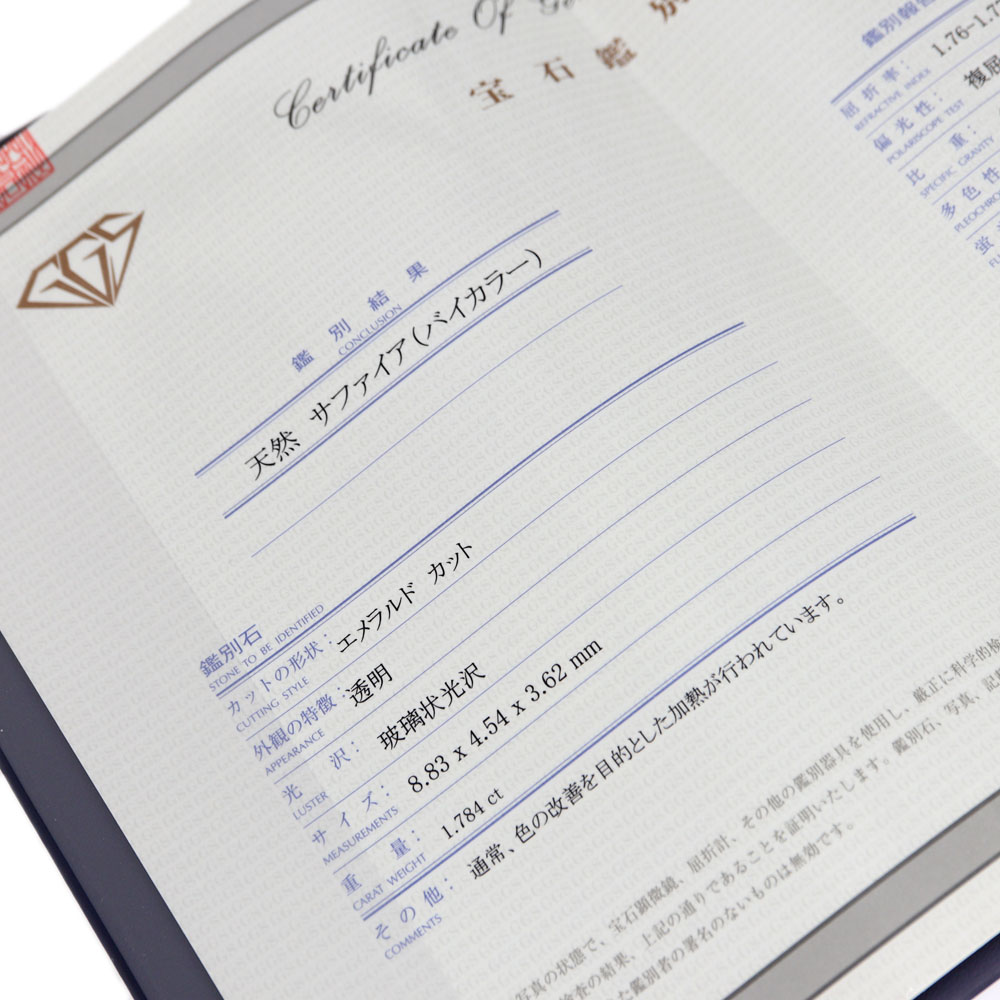 Certificate Of
宝石鑑
GGS
鑑別結果
CONCLUSION
天然 サファイア(バイカラー)
鑑別石
STONE TO BE IDENTIFIED
カットの形状: エメラルド カット
CUTTING STYLE
外観の特徴: 透明
APPEARANCE
光沢: 玻璃状光沢
LUSTER
サイズ: 8.83 x 4.54 x 3.62 mm
MEASUREMENTS
重量: 1.784 ct
CARAT WEIGHT
その他: 通常、色の改善を目的とした加熱が行われています。
COMMENTS
写真の状態で、宝石顕微鏡、屈折計、その他の鑑別器具を使用し、厳正に科学的検
検査の結果、上記の通りであることを証明いたします。鑑別石、写真、記
た鑑別者の署名のないものは無効です。
鑑別報告
屈折率: 1.76-1.7
REFRACTIVE INDEX
偏光性: 複屈
POLARISCOPE TEST
比重:
SPECIFIC GRAVITY
多色性
PLEOCHRO
蛍